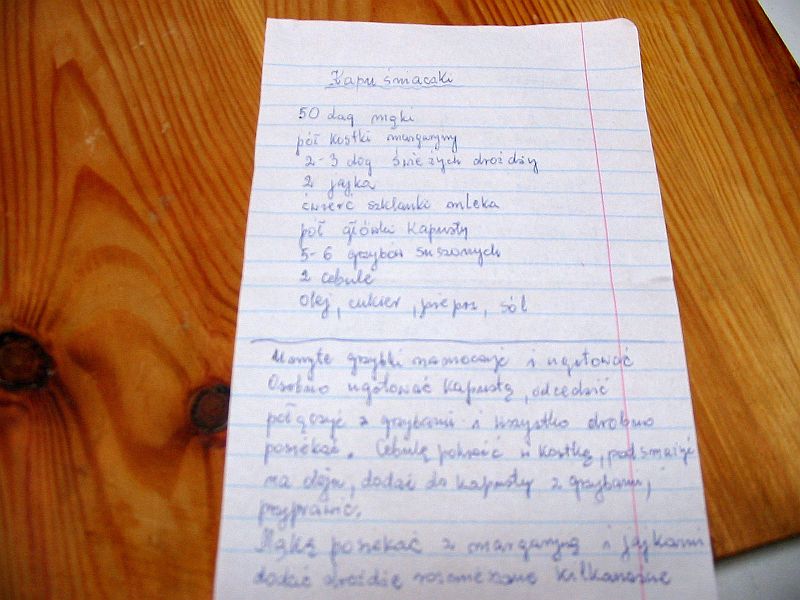 Kapuśniaczki
50 dag mąki
pół kostki margaryny
2-3 dag świeżych drożdży
2 jajka
ćwierć szklanki mleka
pół główki kapusty
5-6 grzybów suszonych
2 cebule
Olej, cukier, pieprz, sól
Umyte grzybki namoczyć i ugotować
Osobno ugotować kapustę, odcedzić
połączyć z grzybami i wszystko drobno
posiekać. Cebulę pokroić w kostkę, podsmażyć
na oleju, dodać do kapusty z grzybami,
przyprawić.
Mąkę posiekać z margaryną i jajkami
dodać drożdże rozmieszane